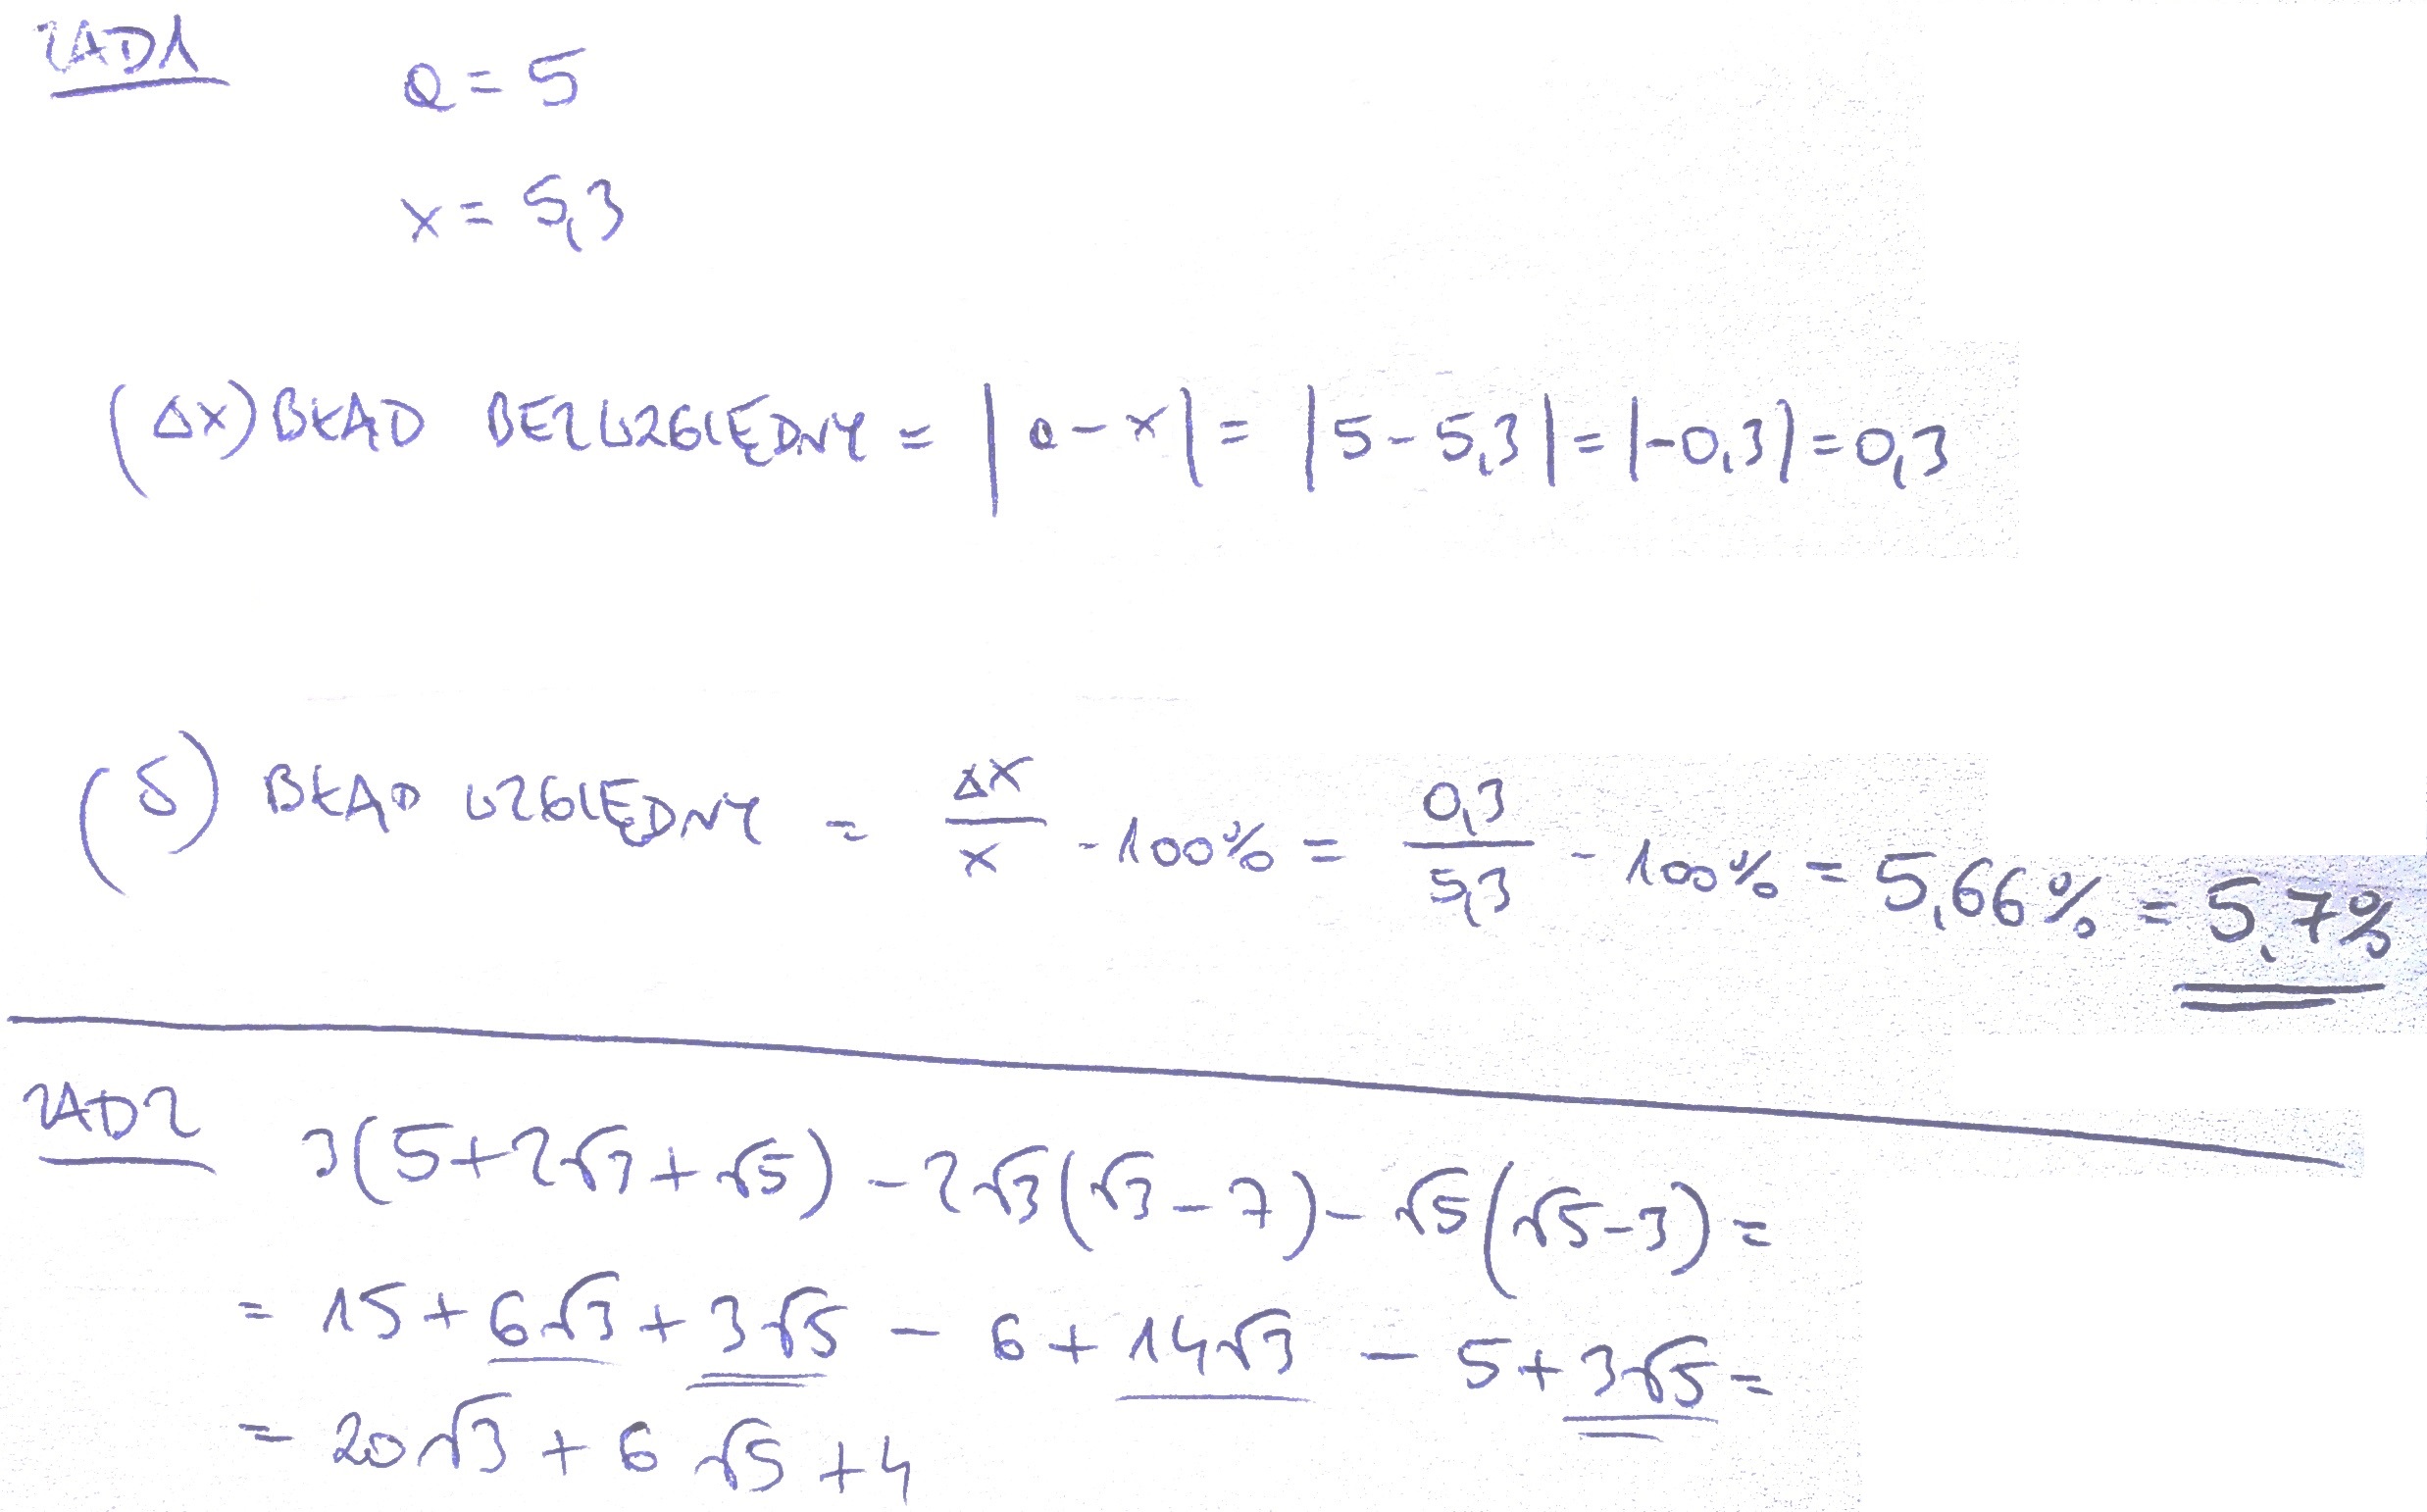 ZAD1
a = 5
x = 5,3
(Δx) BŁĄD BEZWZGLĘDNY = |a - x| = |5 - 5,3| = |-0,3| = 0,3
(δ) BŁĄD WZGLĘDNY = Δx/x · 100% = 0,3/5,3 · 100% = 5,66% = 5,7%
ZAD2
3(5+2√3+√5) - 2√3(√3-7) - √5(√5-3) =
= 15 + 6√3 + 3√5 - 6 + 14√3 - 5 + 3√5 =
= 20√3 + 6√5 + 4